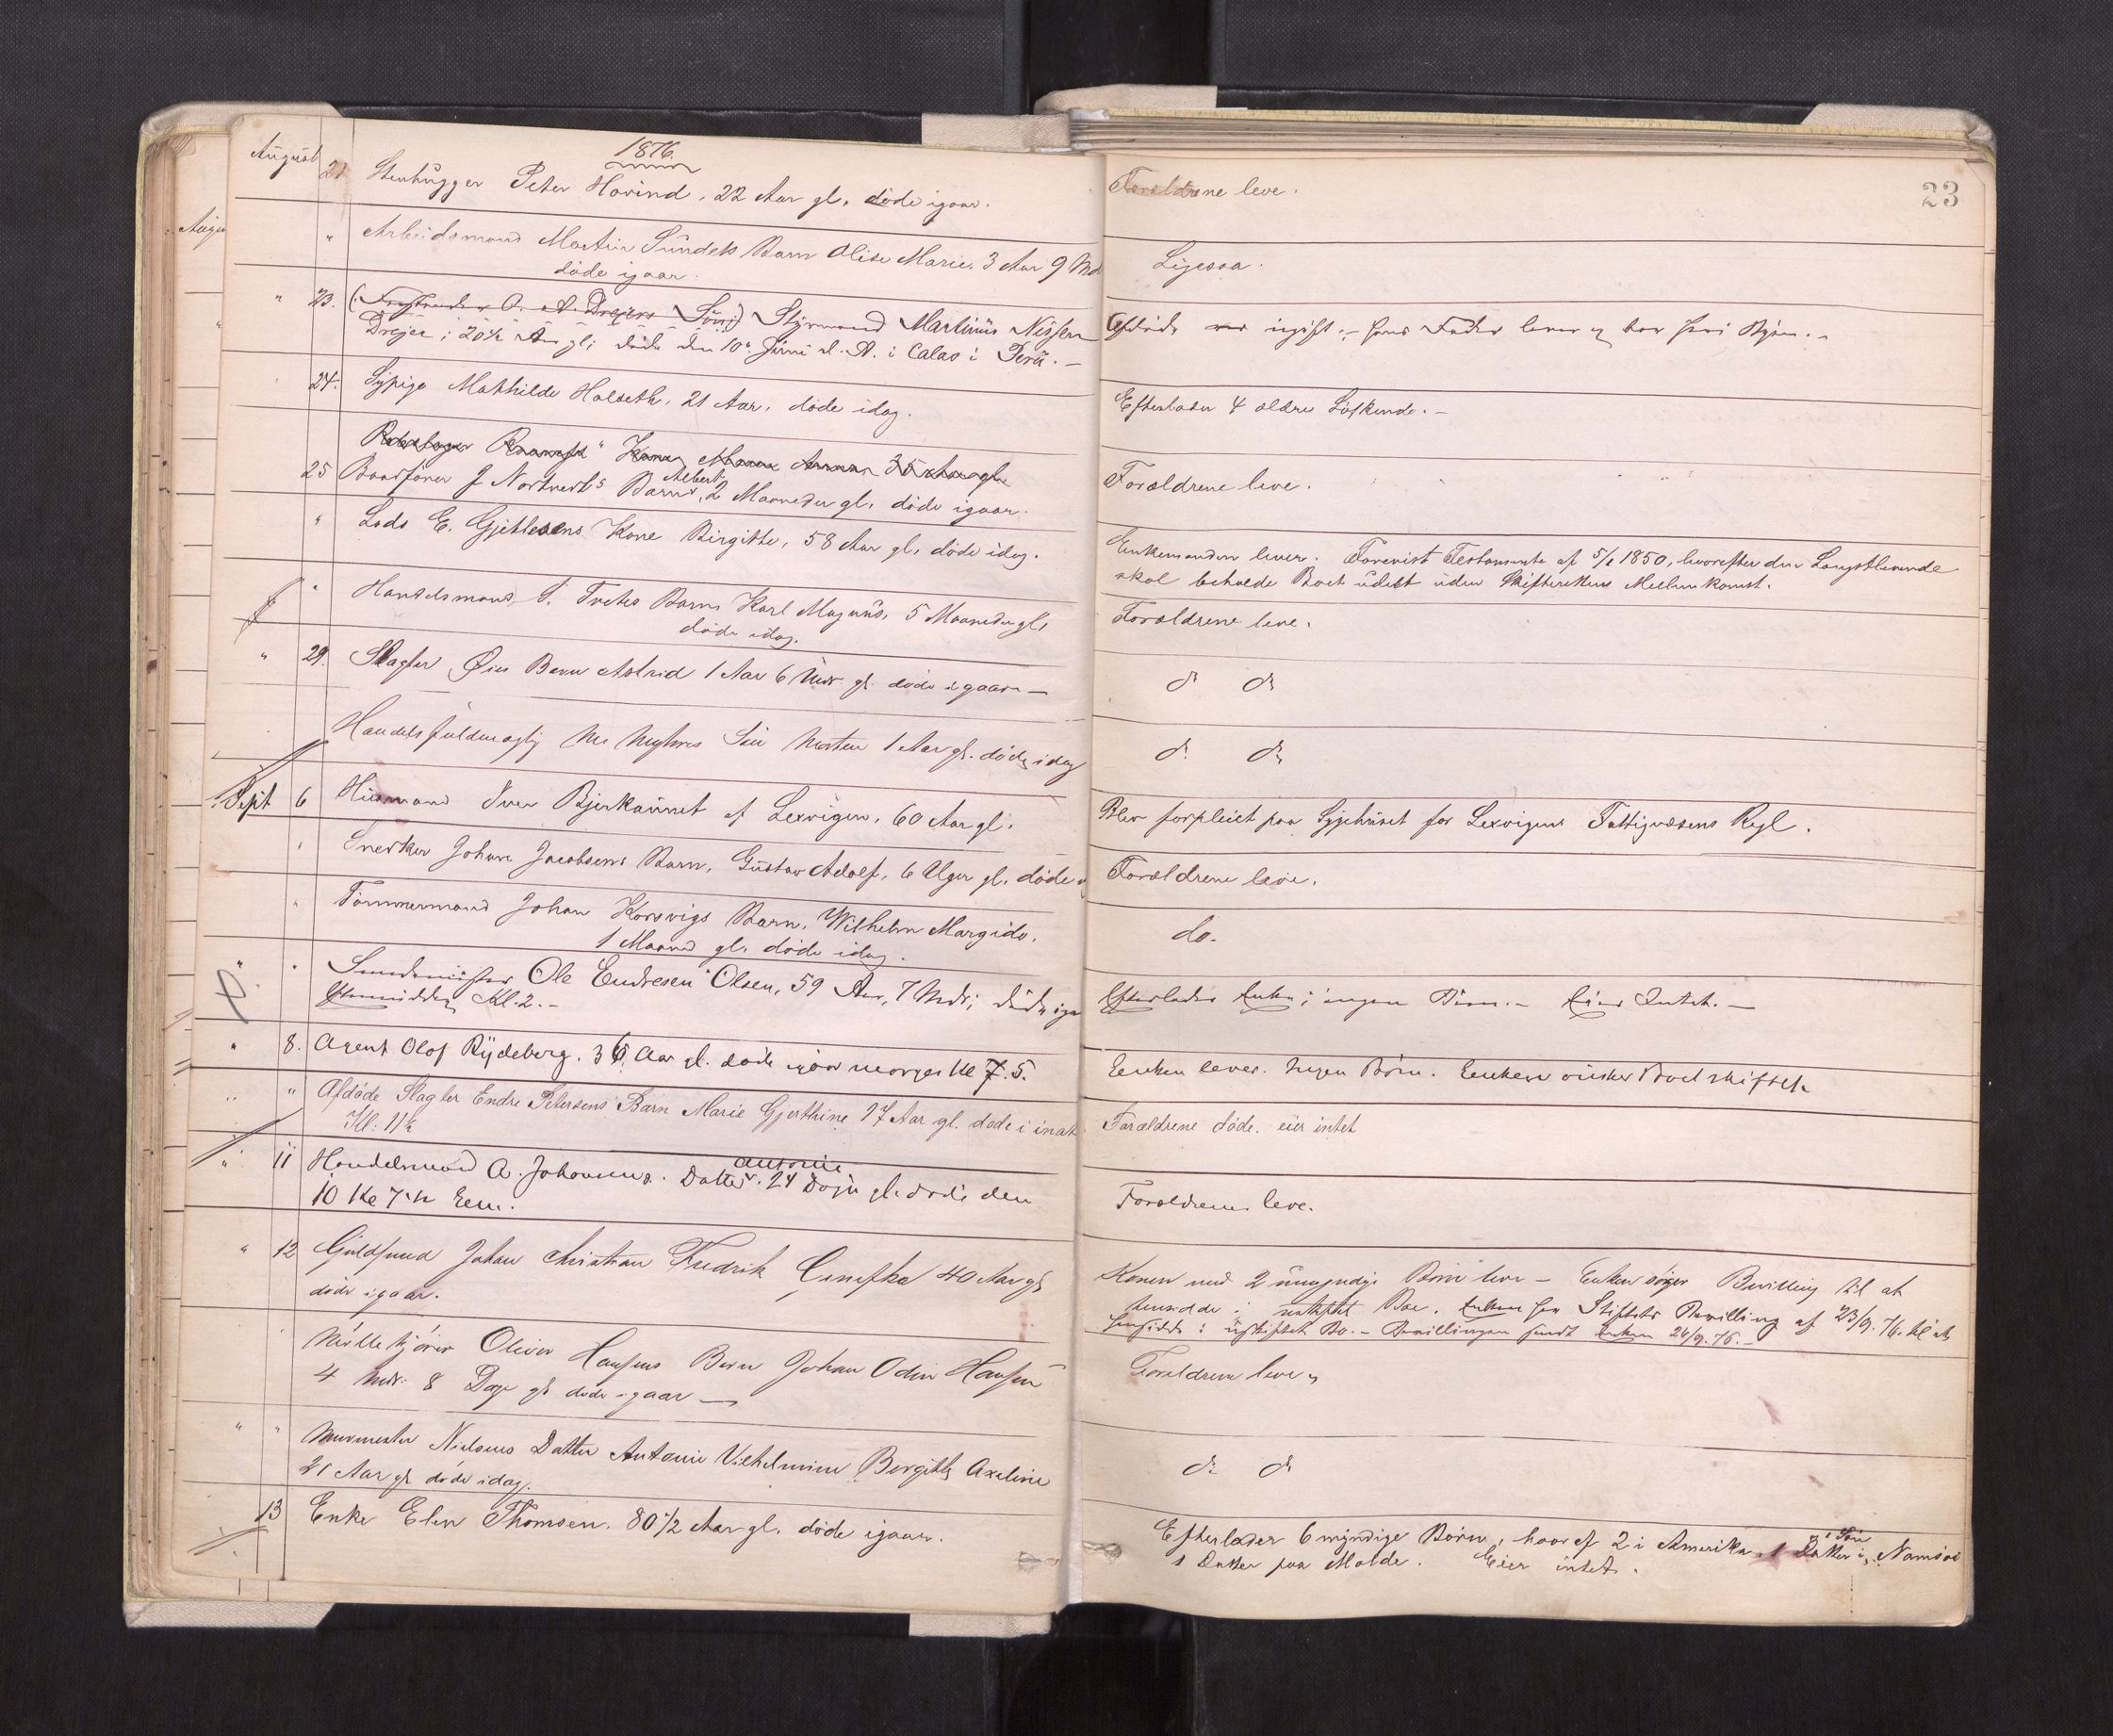 1876.
23
August 21 Stenhugger Peter Hovind, 22 Aar gl. døde igaar.
Forældrene leve.
" Arbeidsmand Martin Sundets Barn Olise Marie, 3 Aar 9 Md
døde igaar.
Ligesaa.
" 23. O. A. Drejers Søn) Styrmand Martinus Nissen
Drejer; 20½ Aar gl; døde den 10de Juni d. A. i Calao i Perú. –
Afdøde var ugift; hans Fader lever og bor her i Byen. –
24. Sypige Mathilde Halseth, 21 Aar, døde idag.
Efterlader 4 ældre Søskende. –
Kone Anna 35 Aar gl.
25 Baadfører J Nortvedts Barn Albert, 2 Maaneder gl. døde igaar.
Forældrene leve.
" Lods E. Gjetlesens Kone Birgitte, 58 Aar gl. døde idag.
Enkemanden lever. Forevist Testamente af 5/1 1850, hvorefter den Længstlevende
skal beholde Boet udelt uden Skifterettens Mellemkomst.
" Handelsmand T. Tretes Barn Karl Magnus, 5 Maaneder gl,
døde idag.
Forældrene leve.
" 29. Slagter Øies Barn Astrid 1 Aar 6 Mdr gl. døde igaar –
do do
Handelsfuldmægtig Søn Morten 1 Aar gl. døde idag
do do
Sept 6 Huusmand Iver Bjerkaunet af Lexvigen, 60 Aar gl.
Blev forpleiet paa Sygehuset for Lexvigens Fattigvæsens Regl.
" Snedker Johan Jacobsens Barn, Gustav Adolf, 6 Uger gl. døde
Forældrene leve.
" Tømmermand Johan Korsvigs Barn, Wilhelm Margido,
1 Maaned gl. døde idag.
do.
" " Smedemester Ole Endresen Olsen, 59 Aar, 7 Mdr; døde
Eftermiddag Kl. 2. –
Efterlader Enke; ingen Børn. – Eier Intet. –
" 8. Agent Olof Rydeberg. 36 Aar gl. døde igaar morges Kl 5.
Enken lever. Ingen Børn. Enken ønsker Boet skiftet
" " Afdøde Slagter Endre Petersens Barn Marie Gjerthine 17 Aar gl. døde i inat
Kl. 11½
Forældrene døde. eier intet
" 11 Handelsmand A. Johannes. Datter Antonie, 24 Dage gl. døde den
10 Kl 7½ Em.
Forældrene leve.
" 12 Guldsmed Johan Christian Fredrik 40 Aar gl
døde igaar.
Konen med 2 umyndige Børn leve – Enken søger Bevilling til at
hensidde i uskiftet Bo. Enken har Stiftets Bevilling af 23/9. 76. til at
hensidde i uskiftet Bo. – Bevillingen sendt Enken 26/9. 76. –
Møllekjører Oliver Hansens Barn Johan Odin Hansen
4 Mdr. 8 Dage gl døde igaar –
Forældrene leve
" " Murmester Nielsens Datter Antonie Vilhelmine Bergitte Axeline
21 Aar gl døde idag.
do do
13 Enke Elen Thomsen. 80½ Aar gl. døde igaar.
Efterlader 6 myndige Børn, hvoraf 2 i Amerika, 1 Søn i Namsos
1 Datter paa Molde. Eier intet.